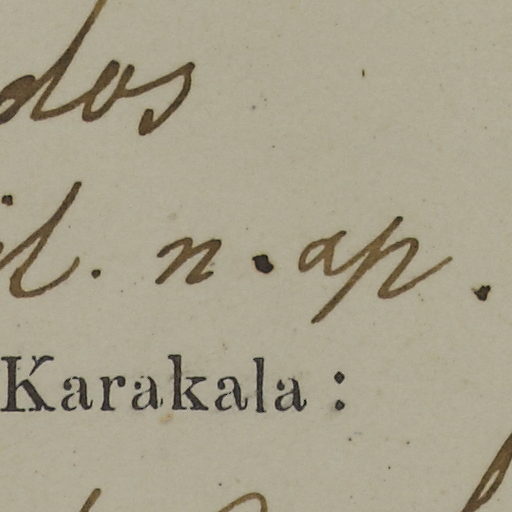 dos
il. n. ap.
Karakala :